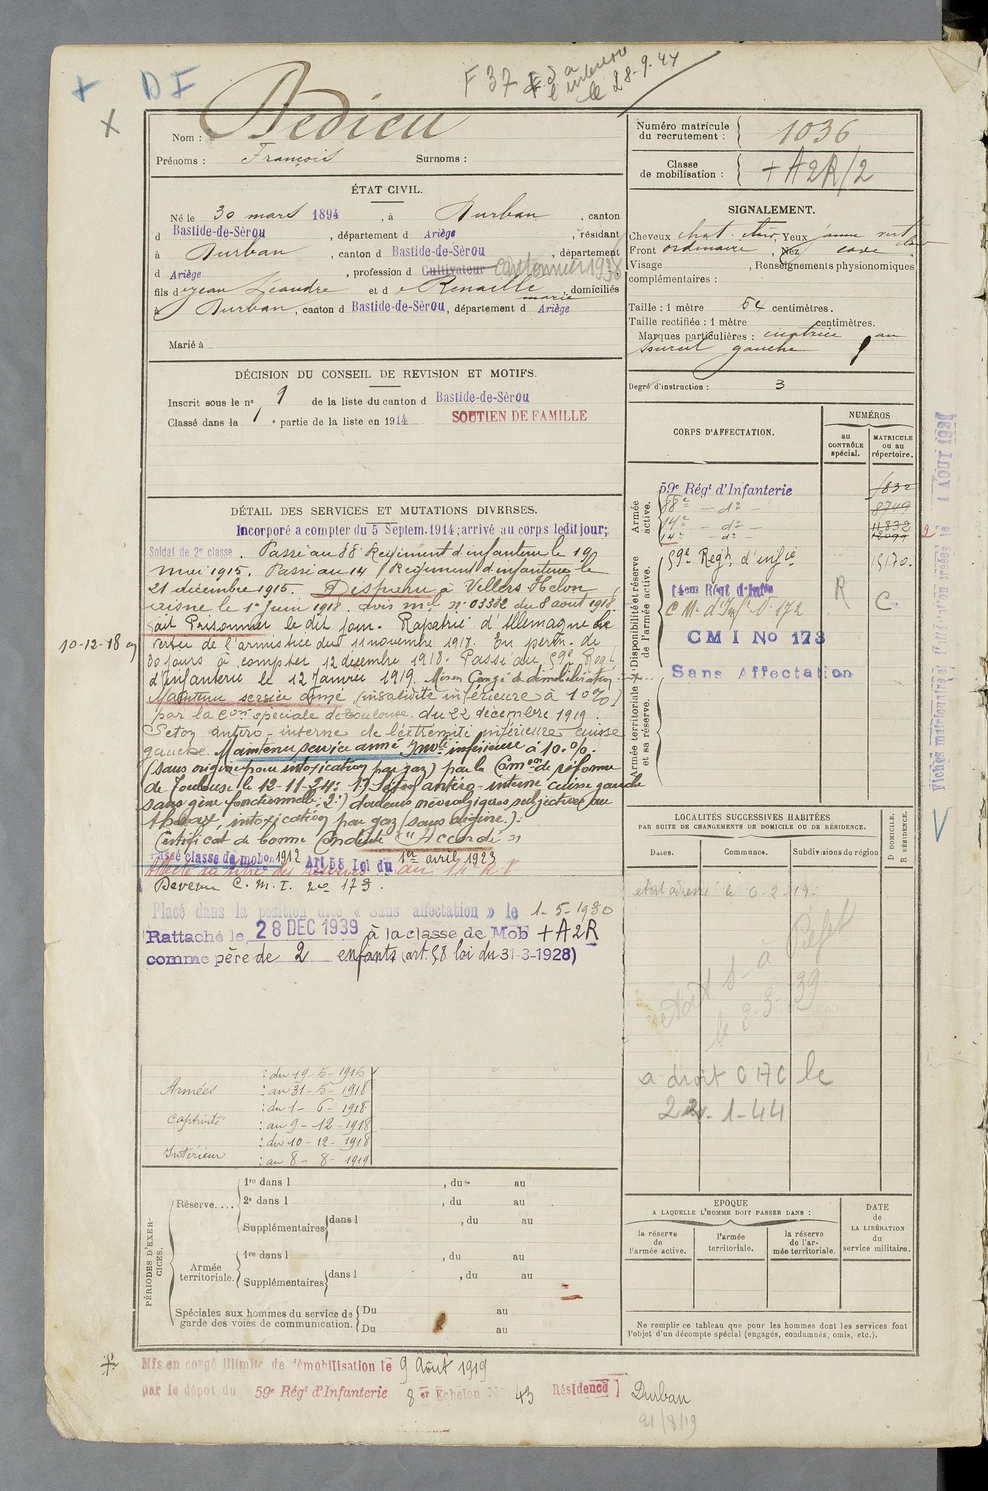 + DF
F 37
le 28-9-44
X
Nom : Dedieu
Prénoms : François Surnoms :
ÉTAT CIVIL.
Né le 30 mars 1894, à Durban, canton
d Bastide-de-Sérou, département d Ariège, résidant
à Durban, canton d Bastide-de-Sérou, département
d Ariège, profession d Cultivateur Cantonnier 1938
fils d e Jean Leandre et d e Renaille marie, domiciliés
à Durban, canton d Bastide-de-Sérou, département d Ariège
Marié à
DÉCISION DU CONSEIL DE REVISION ET MOTIFS.
Inscrit sous le n° 9 de la liste du canton d Bastide-de-Sérou
Classé dans la 1e partie de la liste en 1914 SOUTIEN DE FAMILLE
DÉTAIL DES SERVICES ET MUTATIONS DIVERSES.
Incorporé a compter du 5 Septem. 1914; arrivé au corps ledit jour;
Soldat de 2e classe. Passé au 88e Regiment d'infanterie le 19
mai 1915. Passé au 14 Regiment d'infanterie le
21 décembre 1915. Disparu à Villers Helon
aisne le 1er Juin 1918. avis mel n° 03382 du 8 aout 1918.
fait Prisonnier le dit jour. Rapatrié d'Allemagne en
vertu de l'armistice du 11 novembre 1918. En perm. de
10-12-18
30 jours à compter 12 decembre 1918. Passé au 59e Regt
d'Infanterie le 12 Janvier 1919. Mis en Congé de démobilisation
Maintenu service armé (invalidité inférieure à 10%)
par la Con spéciale de Toulouse du 22 décembre 1919.
Seton antéro-interne de l'extremité inférieure cuisse
gauche. Maintenu service armé Invté inférieure à 10%.
(sans origine pour intoxication par gaz) par la Comon de réforme
de Toulouse le 12-11-24: 1°) Séton antéro-interne cuisse gauche
sans gène fonctionnelle; 2°) douleurs névralgiques subjectives au
thorax, intoxication par gaz (sans origine.).
Certificat de bonne Conduite "Accordé"
Passé classe de mobon 1912 Art 58 Loi du 1er avril 1923
Devenu C. M. I. no 173.
Placé dans la position dite « Sans affectation » le 1-5-1930
Rattaché le 28 DEC 1939 à la classe de Mob + A2R
comme père de 2 enfants (art. 58 loi du 31-3-1928)
Armées : du 19-5-1915
: au 31-5-1918
Captivité : du 1-6-1918
: au 9-12-1918
Intérieur : du 10-12-1918
: au 8-8-1919
PÉRIODES D'EXERCICES.
Réserve....
1re dans l , du au
2e dans l , du au
Supplémentaires dans l , du au
Armée territoriale.
1re dans l , du au
Supplémentaires dans l , du au
Spéciales aux hommes du service de garde des voies de communication.
Du au
Du au
Mis en congé illimité de démobilisation le 9 Août 1919
par le dépot du 59e Régt d'Infanterie 8er Echelon N° 43 Résidence Durban
21/8/19
Numéro matricule du recrutement : 1036
Classe de mobilisation : + A2R/2
SIGNALEMENT.
Cheveux chat. clair, Yeux jaune vert clair
Front ordinaire Nez cave
Visage , Renseignements physionomiques
complémentaires :
Taille : 1 mètre 54 centimètres.
Taille rectifiée : 1 mètre centimètres.
Marques particulières : cicatrice au
sourcil gauche
Degré d'instruction : 3
CORPS D'AFFECTATION.
NUMÉROS
au CONTRÔLE spécial.
MATRICULE ou au répertoire.
Armée active.
59e Régt d'Infanterie
88e - do - 8749
14e - do - 11,832
14e - do -
Disponibilité et réserve de l'armée active.
59e Regt d'infie 5170
14eme Régt d'Infie R C
C M. d'Inf. N° 172
CMI No 173
Sans Affectation
Armée territoriale et sa réserve.
Fiches matricu
LOCALITÉS SUCCESSIVES HABITÉES
PAR SUITE DE CHANGEMENTS DE DOMICILE OU DE RÉSIDENCE.
Dates. Communes. Subdivisions de région
D DOMICILE.
R RÉSIDENCE.
à Prefet
le 2-3-39
a droit C A C le
22-1-44
EPOQUE
A LAQUELLE L'HOMME DOIT PASSER DANS :
la réserve de l'armée active.
l'armée territoriale.
la réserve de l'armée territoriale.
DATE de LA LIBÉRATION du service militaire.
Ne remplir ce tableau que pour les hommes dont les services font
l'objet d'un décompte spécial (engagés, condamnés, omis, etc.).